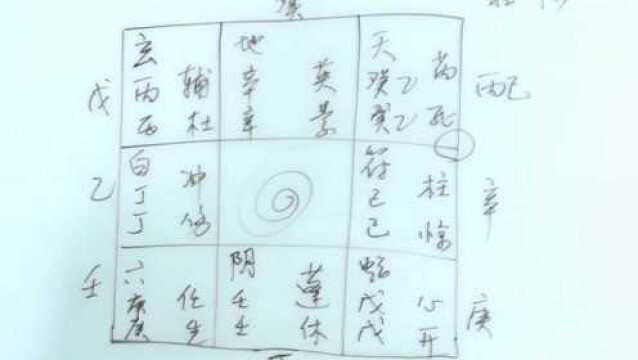 玄 地 天
辅 英 芮
戊 丙 辛 癸乙 丙己
丙 杜 辛 景 癸乙 死
白 符
乙 丁 冲 己 柱 辛
丁 伤 己 惊
六 阴 蛇
壬 庚 任 壬 蓬 戊 心 庚
庚 生 壬 休 戊 开